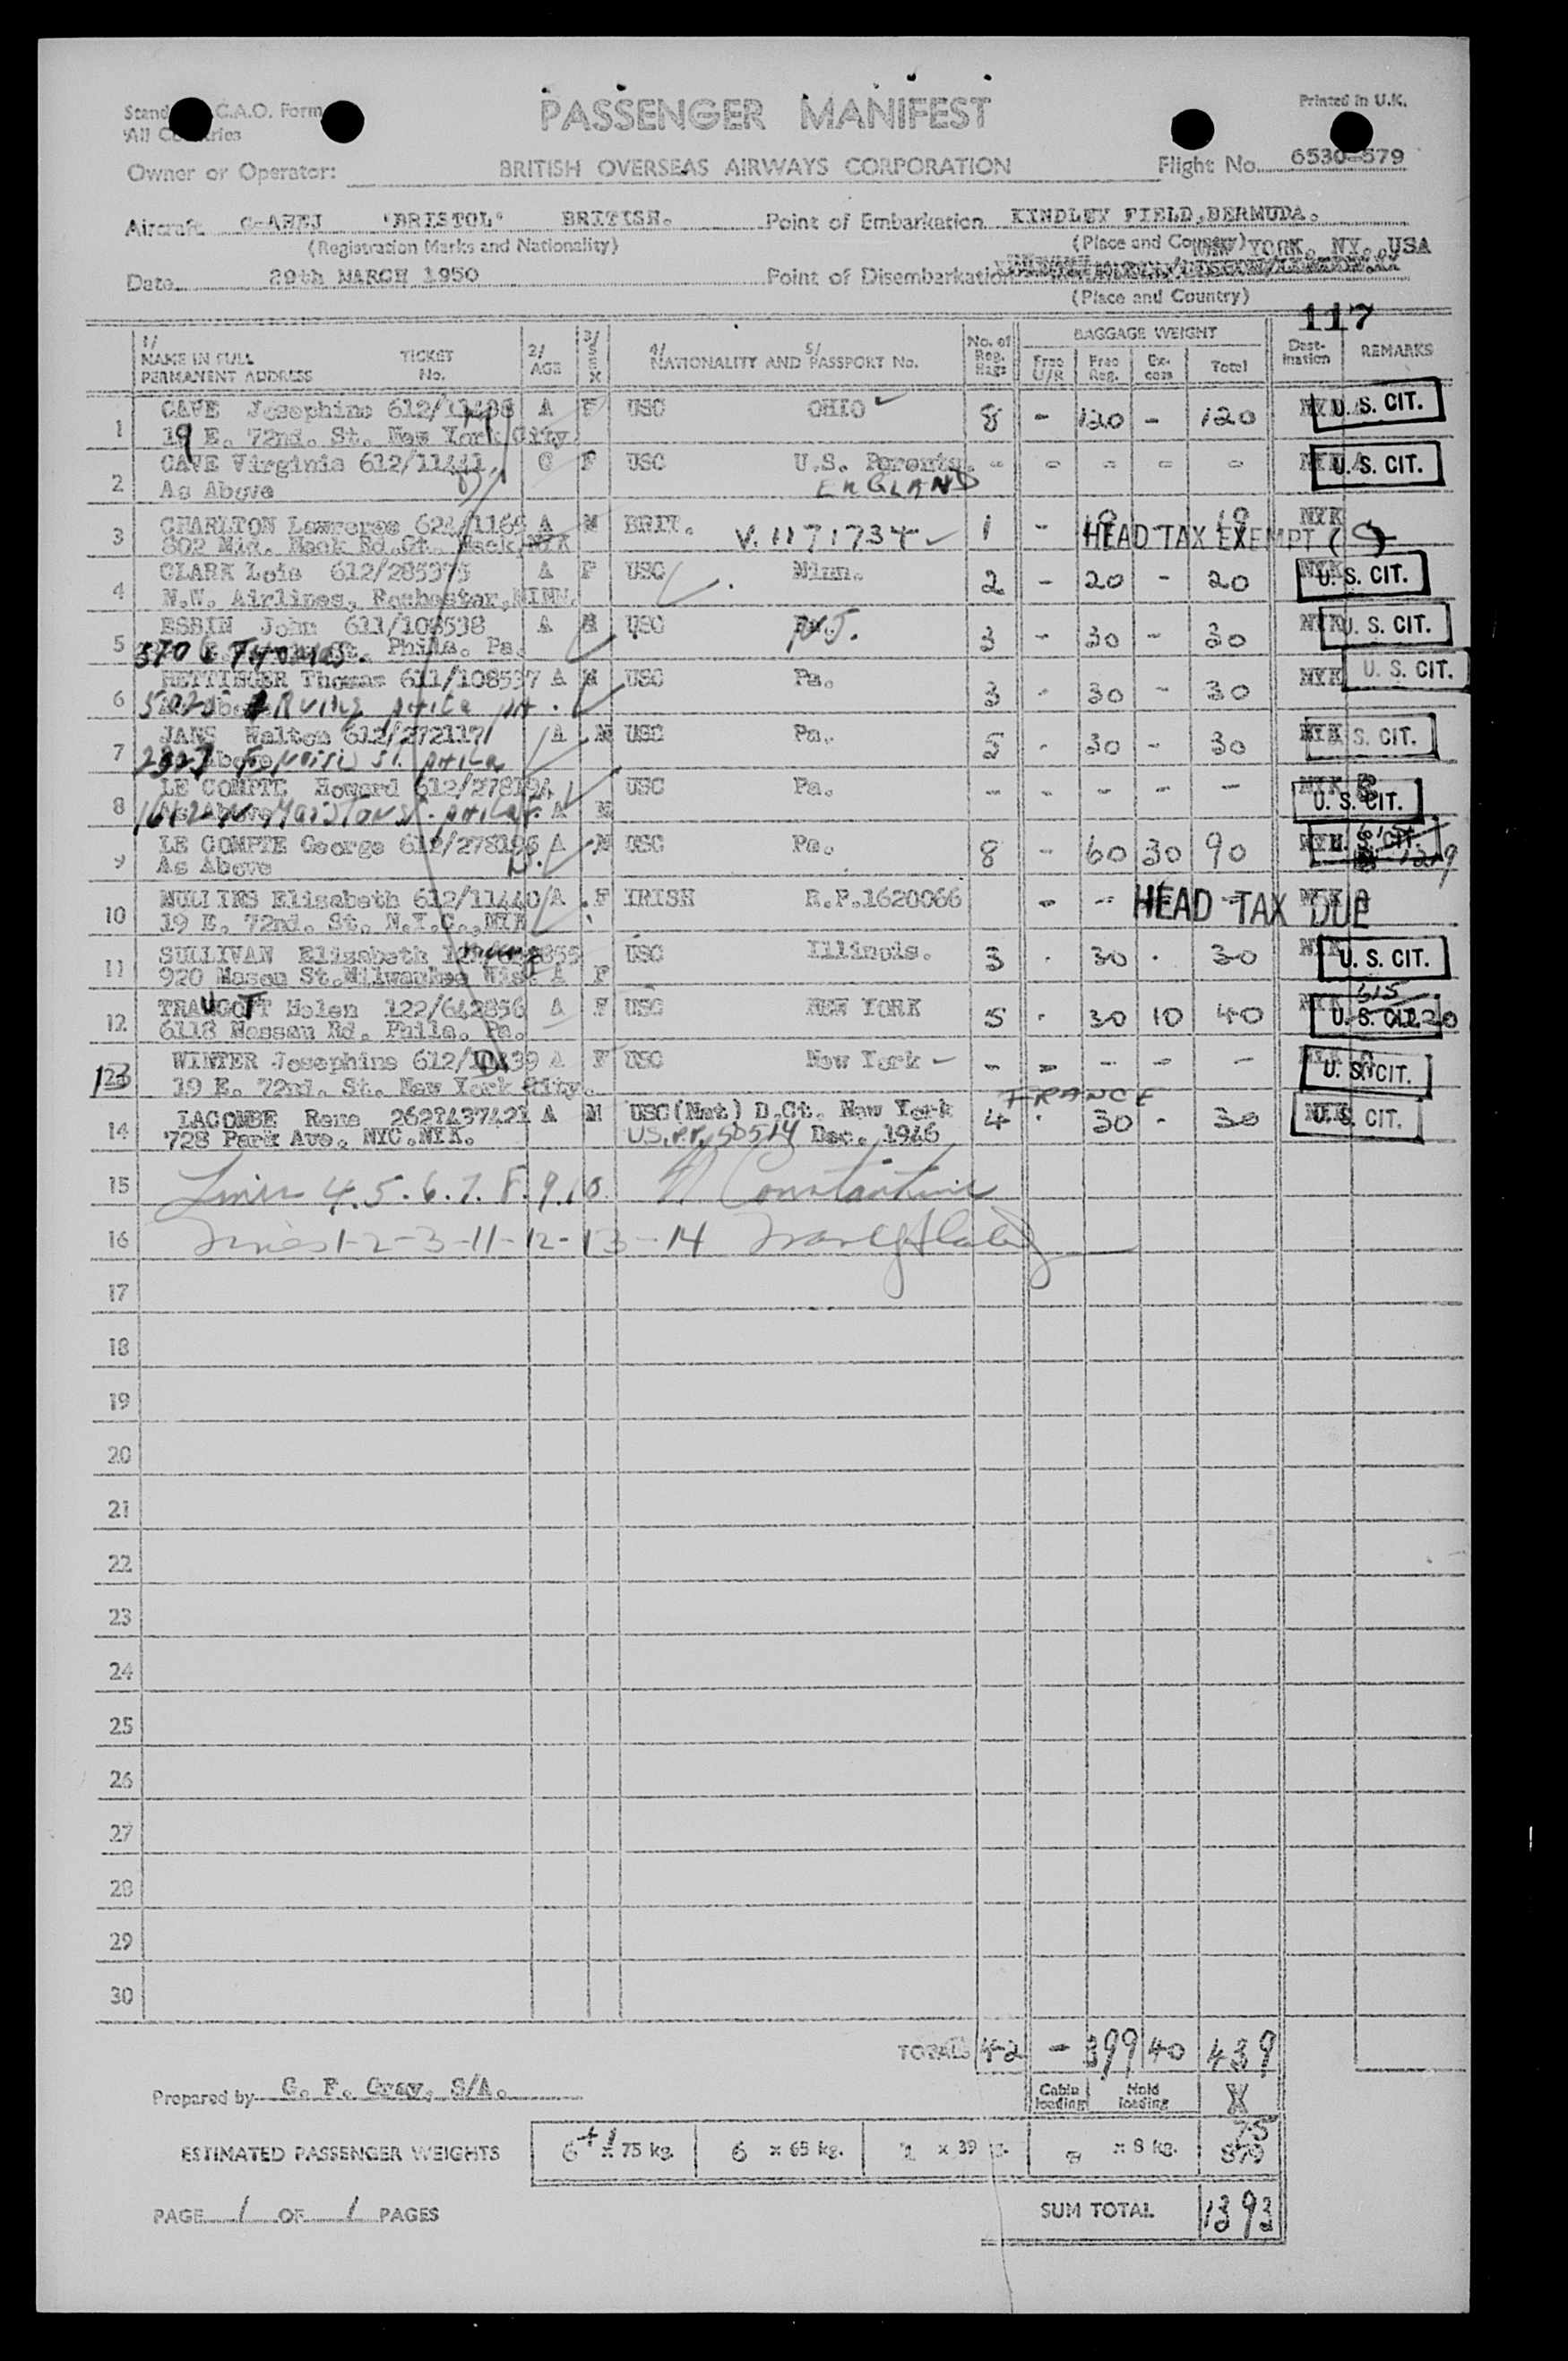 PASSENGER MANIFEST
Printed in U.K.
C.A.O. Form
All Countries
Owner or Operator: BRITISH OVERSEAS AIRWAYS CORPORATION Flight No. 6530-579
Aircraft 'BRISTOL' BRITISH. Point of Embarkation KINDLEY FIELD, BERMUDA.
(Registration Marks and Nationality) (Place and Country)
NEW YORK, NY., USA
Date 29th MARCH 1950 Point of Disembarkation
(Place and Country)
117
1/ NAME IN FULL PERMANENT ADDRESS TICKET No. 2/ AGE 3/ SEX 4/ NATIONALITY AND 5/ PASSPORT No. No. of Reg. Bags BAGGAGE WEIGHT Free U/R Free Reg. Ex-cess Total Dest-ination REMARKS
1 CAVE Josephine A F USC OHIO 8 - 120 - 120 NYK U. S. CIT.
19 E. 72nd. St. New York City
2 CAVE Virginia 612/11441 C F USC U.S. Parents. - - - - - NYK U. S. CIT.
As Above ENGLAND
3 CHARLTON A M BRIT. V.1171734 1 - NYK
HEAD TAX EXEMPT
4 CLARK Lois 612/285375 A F USC Minn. 2 - 20 - 20 NYK U. S. CIT.
N.W. Airlines, Rochester, MINN.
5 ESBIN John 611/108538 A M USC N.J. 3 - 30 - 30 NYK U. S. CIT.
5706 Thomas St. Phila. Pa.
6 HETTINGER Thomas 611/108537 A M USC Pa. 3 - 30 - 30 NYK U. S. CIT.
Phila PA.
7 JANS Walton 612/272117 A M USC Pa. 5 - 30 - 30 NYK U. S. CIT.
St. Phila
8 LE COMPTE Howard 612/278194 A M USC Pa. - - - - - NYK U. S. CIT.
9 LE COMPTE George 612/278195 A M USC Pa. 8 - 60 30 90 NYK U. S. CIT.
As Above
10 MULLINS Elizabeth 612/11440 A F IRISH R.P.1620066 - - NYK
19 E. 72nd. St. N.Y.C., NYK HEAD TAX DUE
11 SULLIVAN Elizabeth USC Illinois. 3 . 30 . 30 NYK U. S. CIT.
920 Mason St. Milwaukee Wis. A F
12 TRAUGOTT Helen 122/642856 A F USC NEW YORK 5 . 30 10 40 NYK U. S. CIT.
6118 Nassau Rd. Phila. Pa.
13 WINTER Josephine A F USC New York - - - - - U. S. CIT.
19 E. 72nd. St. New York City.
FRANCE
14 LACOMBE Rene 2627437421 A M USC (Nat) D.Ct. New York 4 . 30 - 30 NYK U. S. CIT.
728 Park Ave. NYC. NYK. Dec. 1946
15 Lines 4.5.6.7.8.9.10 Constantine
16 Lines 1-2-3-11-12-13-14
17
18
19
20
21
22
23
24
25
26
27
28
29
30
TOTAL 42 - 399 40 439
Prepared by C. F. Gray, S/A.
Cabin loading Hold loading
ESTIMATED PASSENGER WEIGHTS 6+1 x 75 kg. 6 x 65 kg. 1 x 39 x 8 kg. 75 879
PAGE 1 OF 1 PAGES
SUM TOTAL 1393